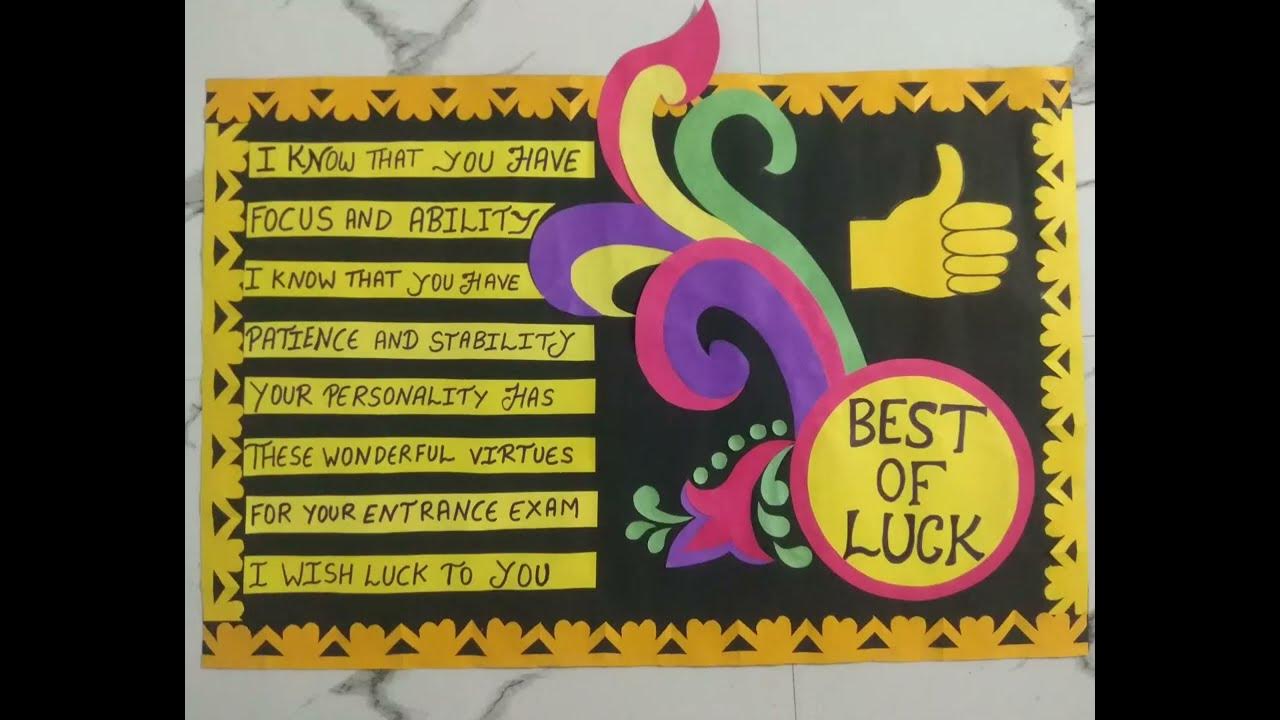 I KNOW THAT YOU HAVE
FOCUS AND ABILITY
I KNOW THAT YOU HAVE
PATIENCE AND STABILITY
YOUR PERSONALITY HAS
THESE WONDERFUL VIRTUES
FOR YOUR ENTRANCE EXAM
I WISH LUCK TO YOU
BEST
OF
LUCK